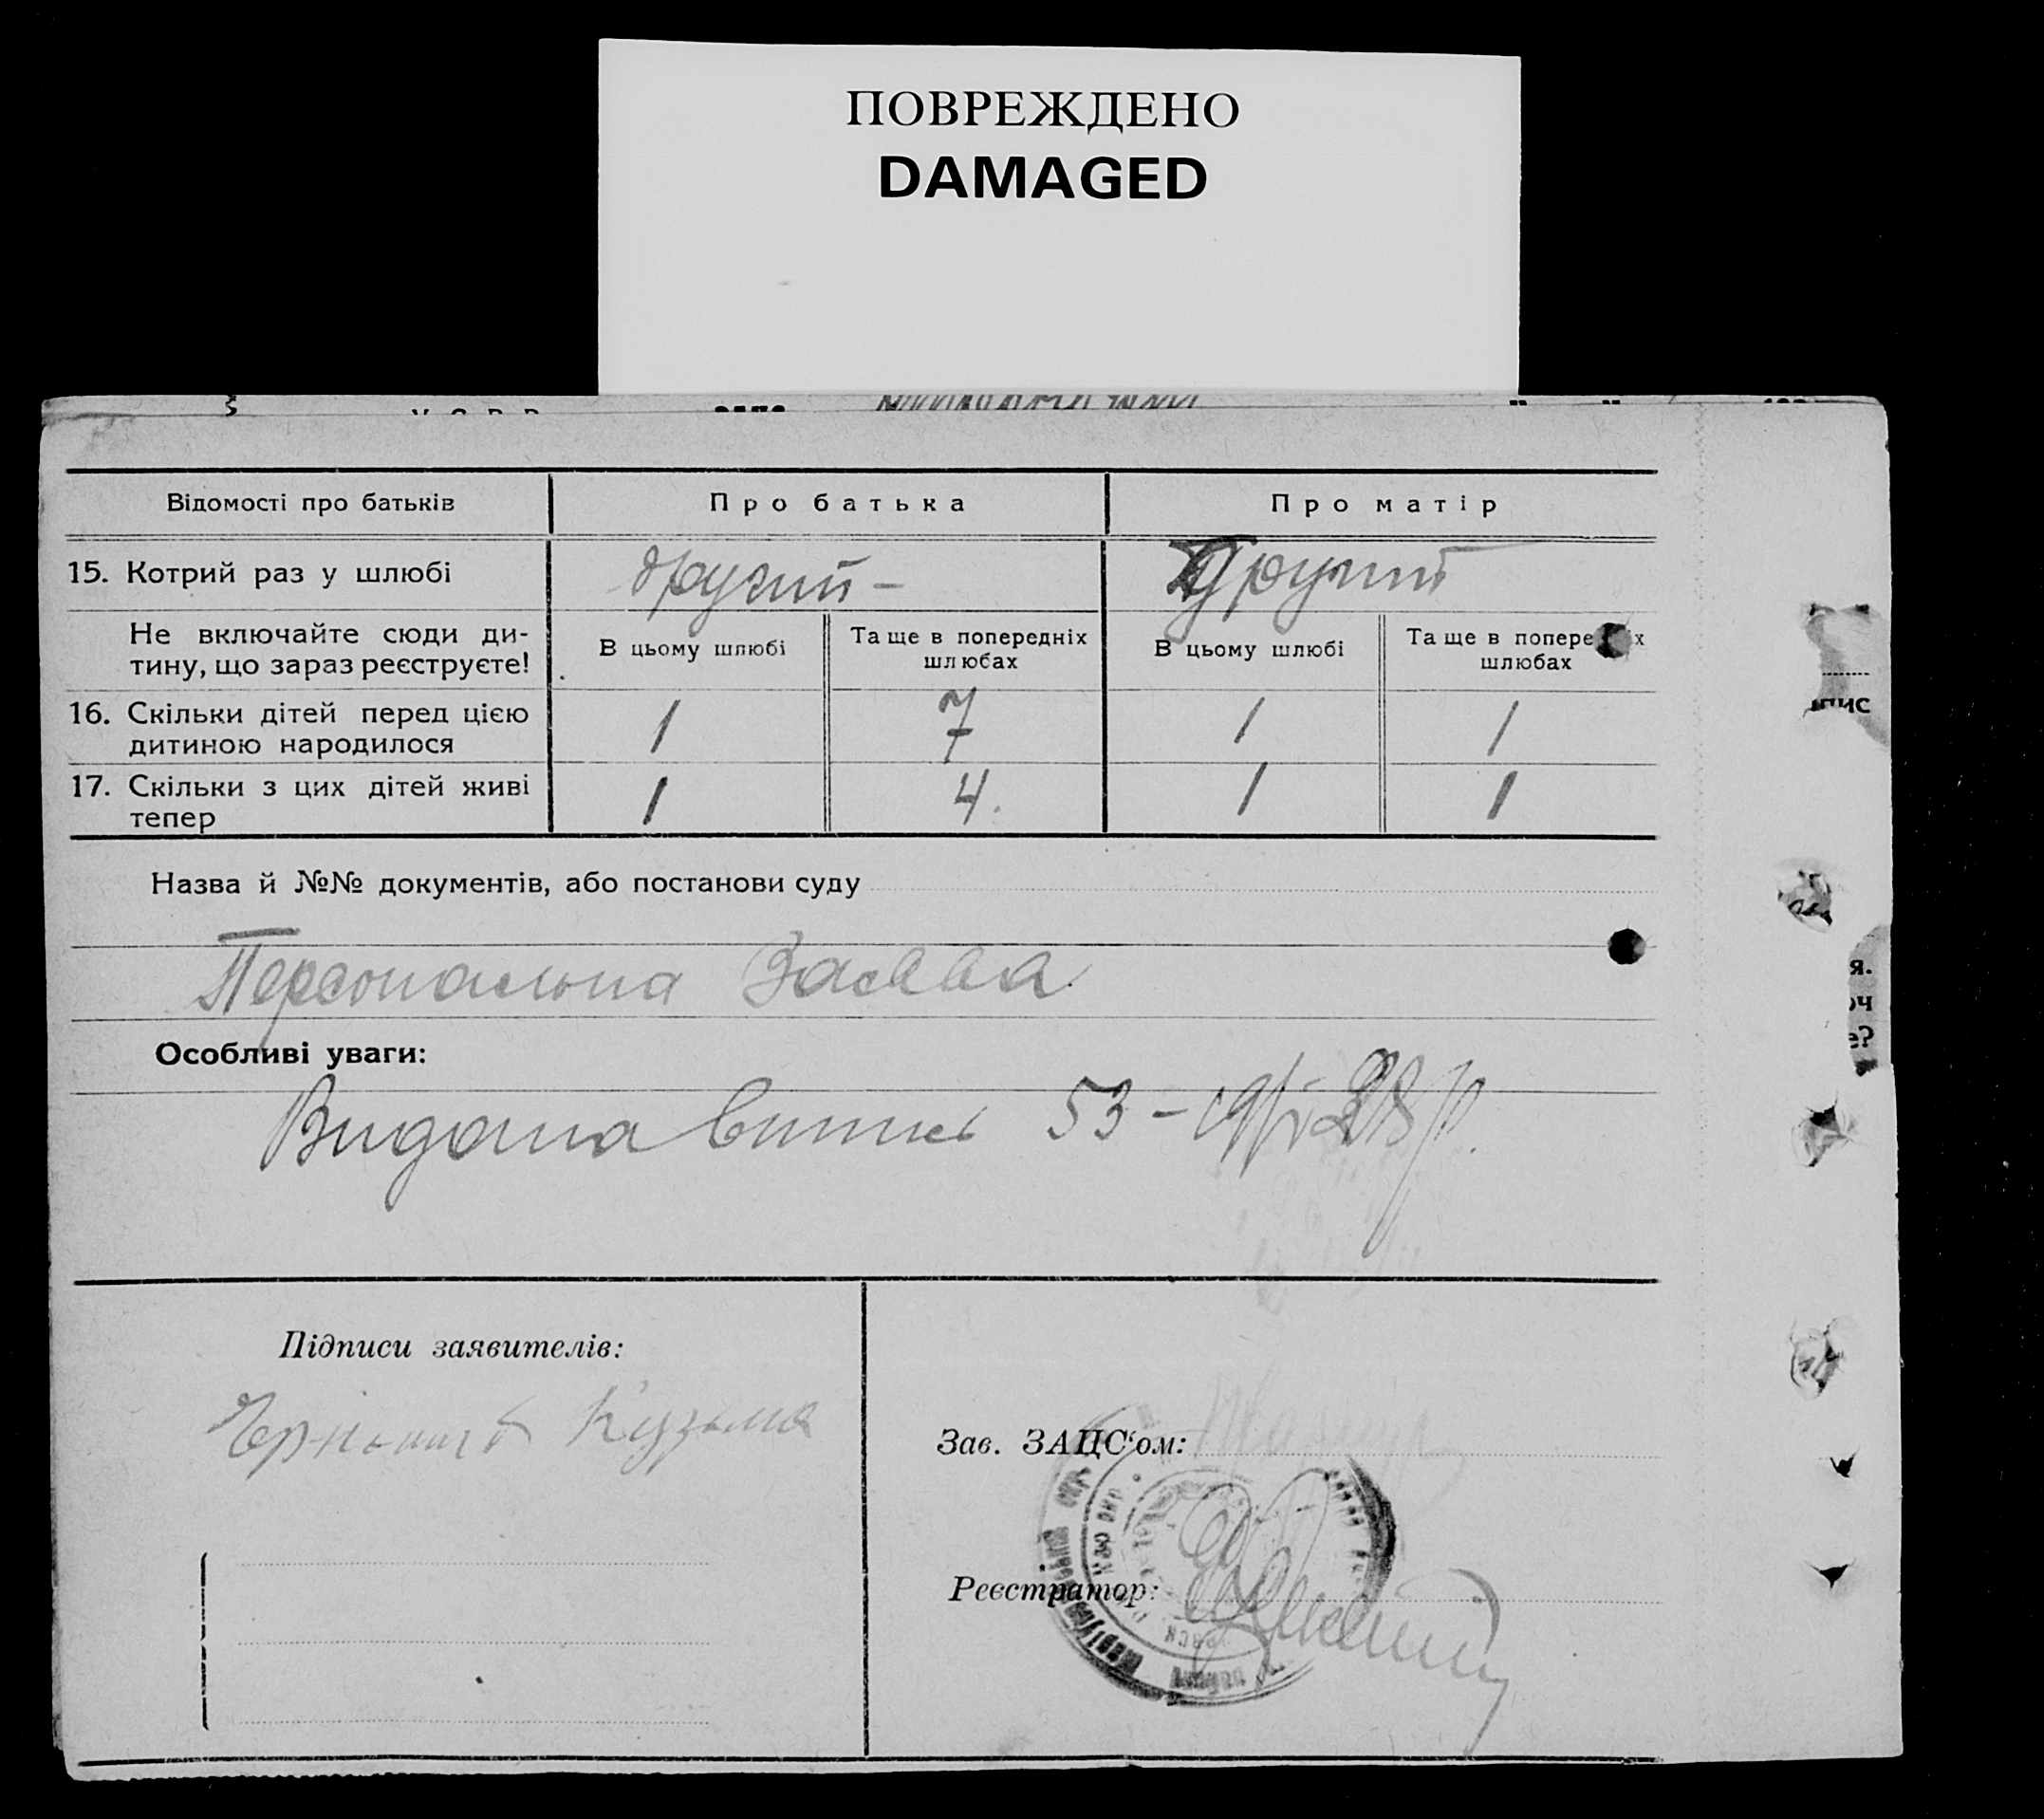 ПОВРЕЖДЕНО
DAMAGED
Відомості про батьків
Про батька
Про матір
15. Котрий раз у шлюбі
другий –
Другий
Не включайте сюди ди-
тину, що зараз реєструєте!
В цьому шлюбі
Та ще в попередніх
шлюбах
В цьому шлюбі
Та ще в попере х
шлюбах
16. Скільки дітей перед цією
дитиною народилося
1
7
1
1
17. Скільки з цих дітей живі
тепер
1
4.
1
1
Назва й №№ документів, або постанови суду
Персональна Заява.
Особливі уваги:
Видана випись 53 –
Підписи заявителів:
Кузьма
Зав. ЗАЦС‘ом:
Реєстратор:
пис
я.
оч
е?